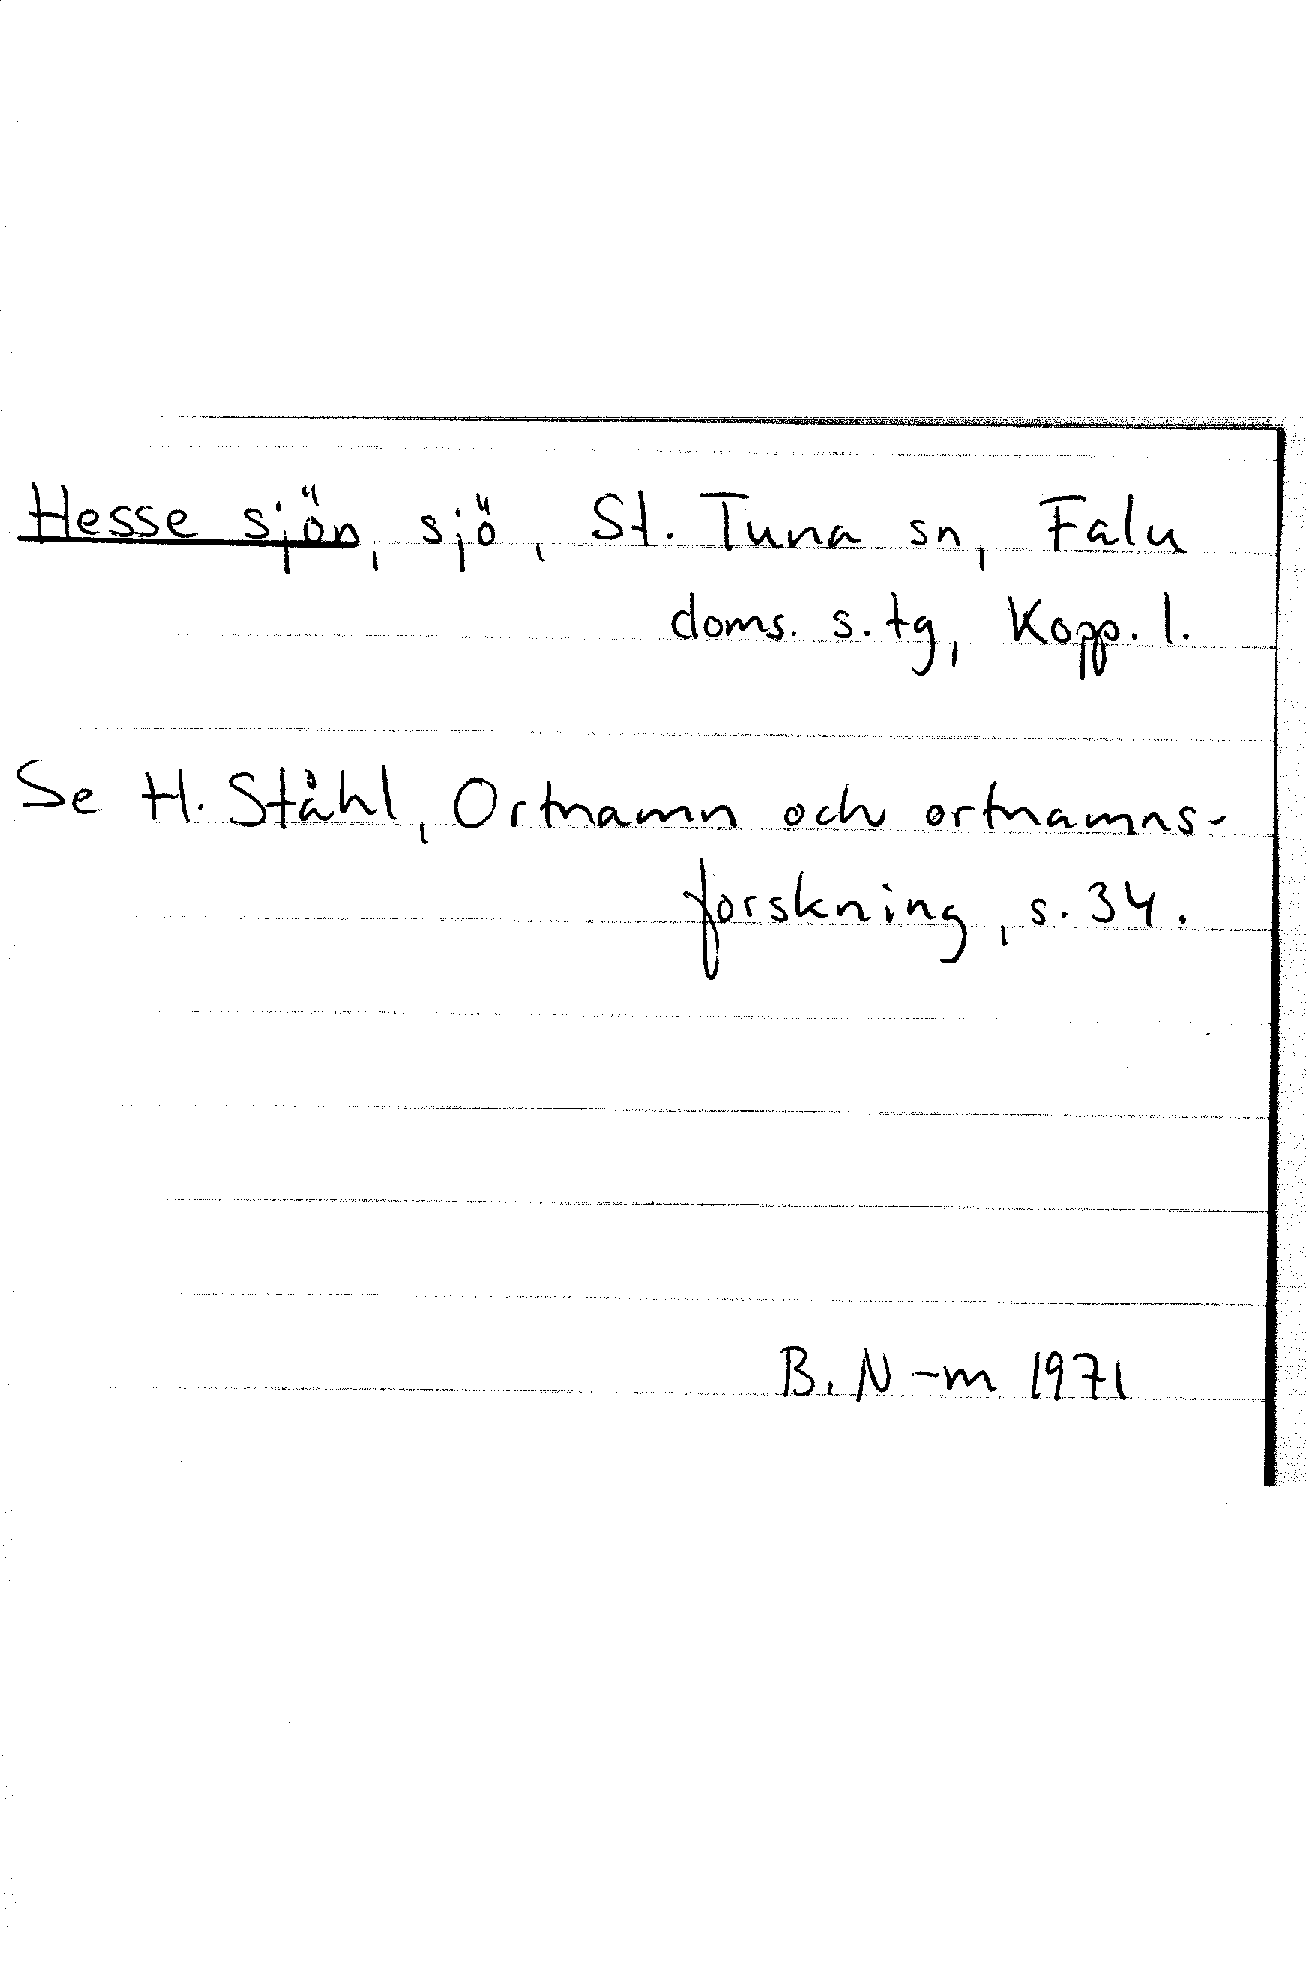 Hesse sjön, sjö, St. Tuna sn, Falu
doms. s. tg, Kopp. l.
Se H. Ståhl, Ortnamn och ortnamns-
forskning, s. 34.
B. N-m 1971